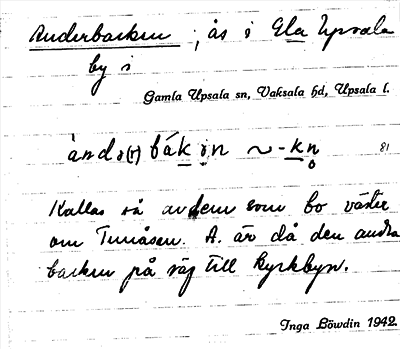 Anderbacken, ås i Gla Upsala
by i
Gamla Upsala sn, Vaksala hd, Upsala l.
àndə(r)bákən ~-kn̥ 81
Kallas så av dem som bo väster
om Tunåsen. A. är då den andra
backen på väg till Kyrkbyn.
Inga Löwdin 1942.